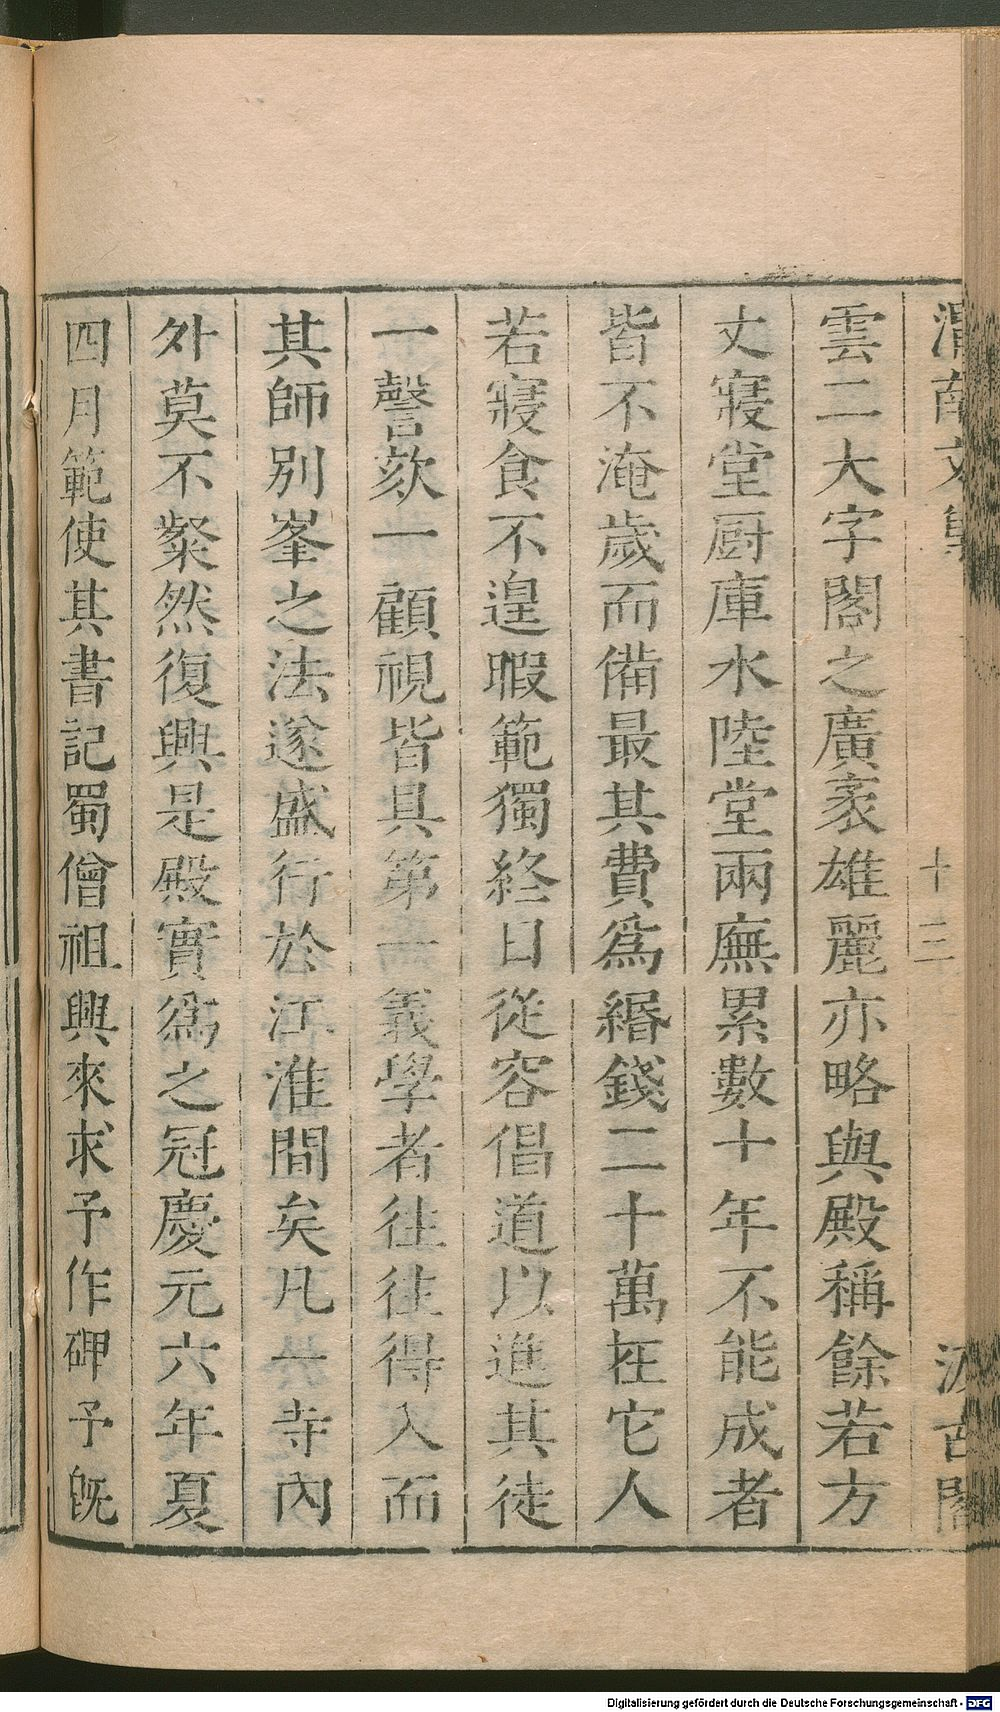 渭南文集 十三 汲古閣
雲二大字閣之廣袤雄麗亦略與殿稱餘若方
丈寢堂厨庫水陸堂兩廡累數十年不能成者
皆不淹歲而備最其費爲緡錢二十萬在它人
若寢食不遑暇範獨終日從容倡道以進其徒
一謦欬一顧視皆具第一義學者往往得入而
其師別峯之法遂盛行於江淮間矣凡一寺內
外莫不粲然復興是殿實爲之冠慶元六年夏
四月範使其書記蜀僧祖興來求予作碑予旣
Digitalisierung gefördert durch die Deutsche Forschungsgemeinschaft - DFG